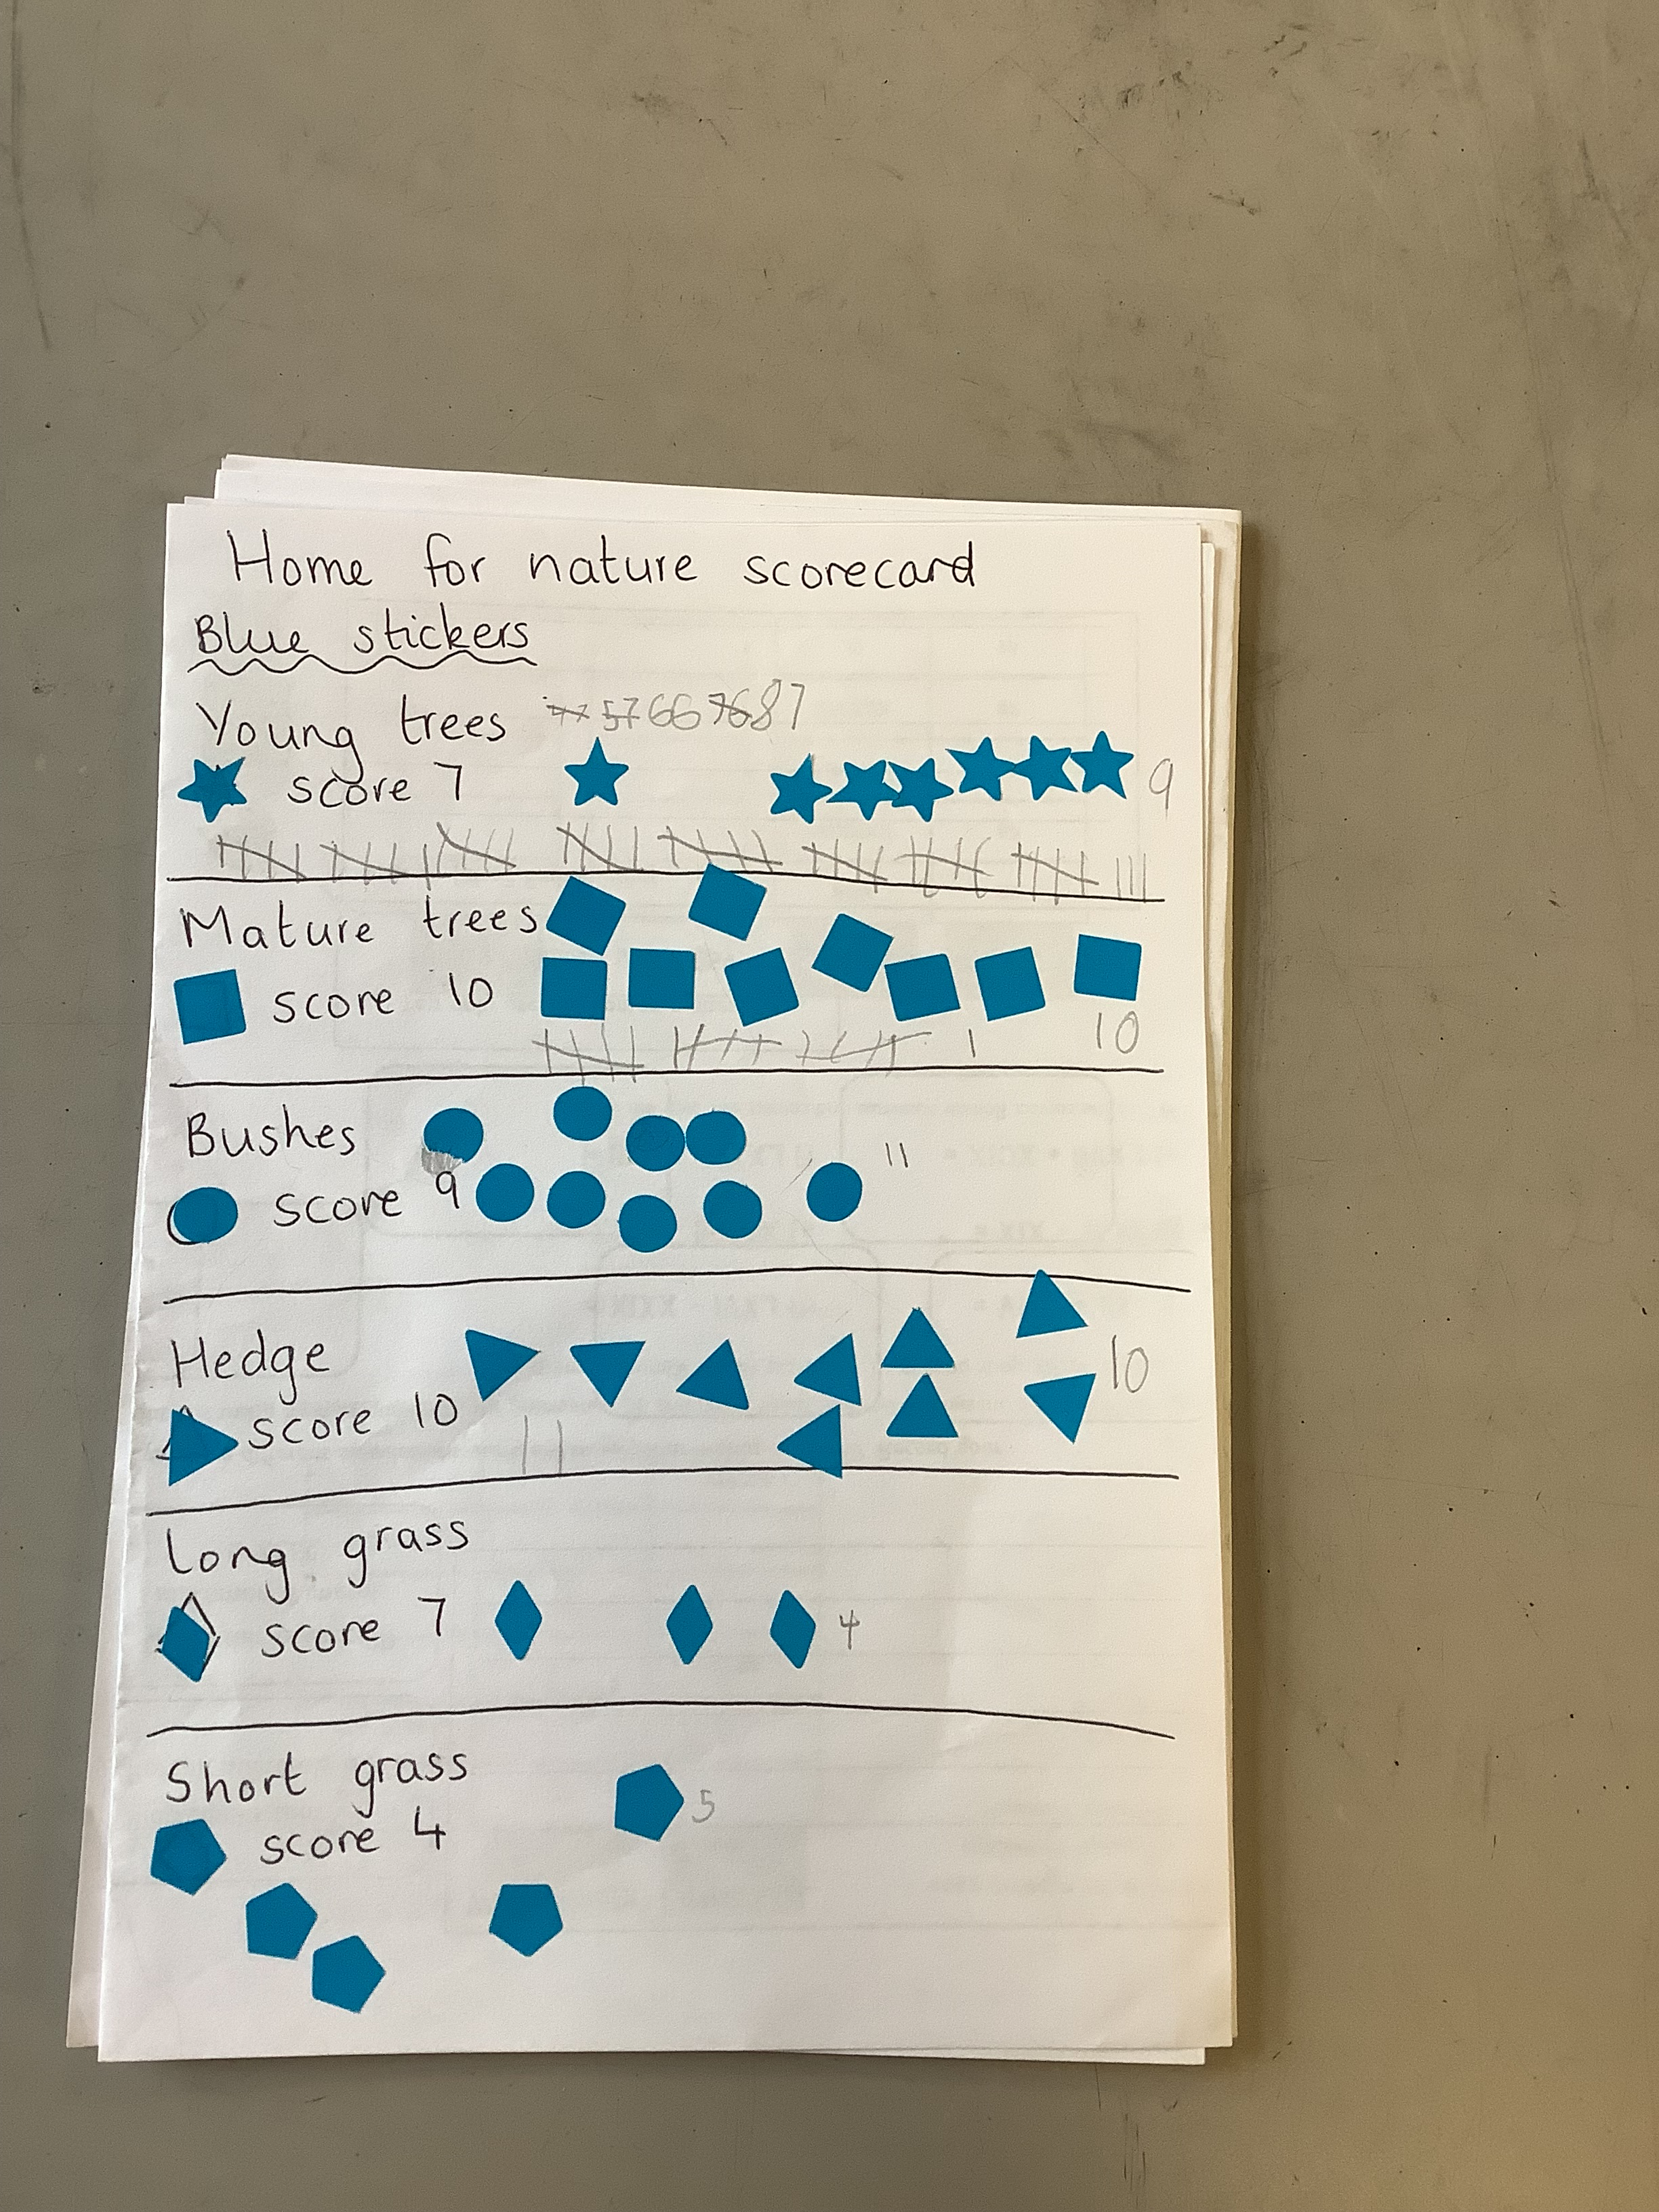 Home for nature scorecard
Blue stickers
Young trees 57 66 76 87
score 7 9
Mature trees
score 10
10
Bushes 11
score 9
Hedge 10
score 10
Long grass
score 7 4
Short grass 5
score 4